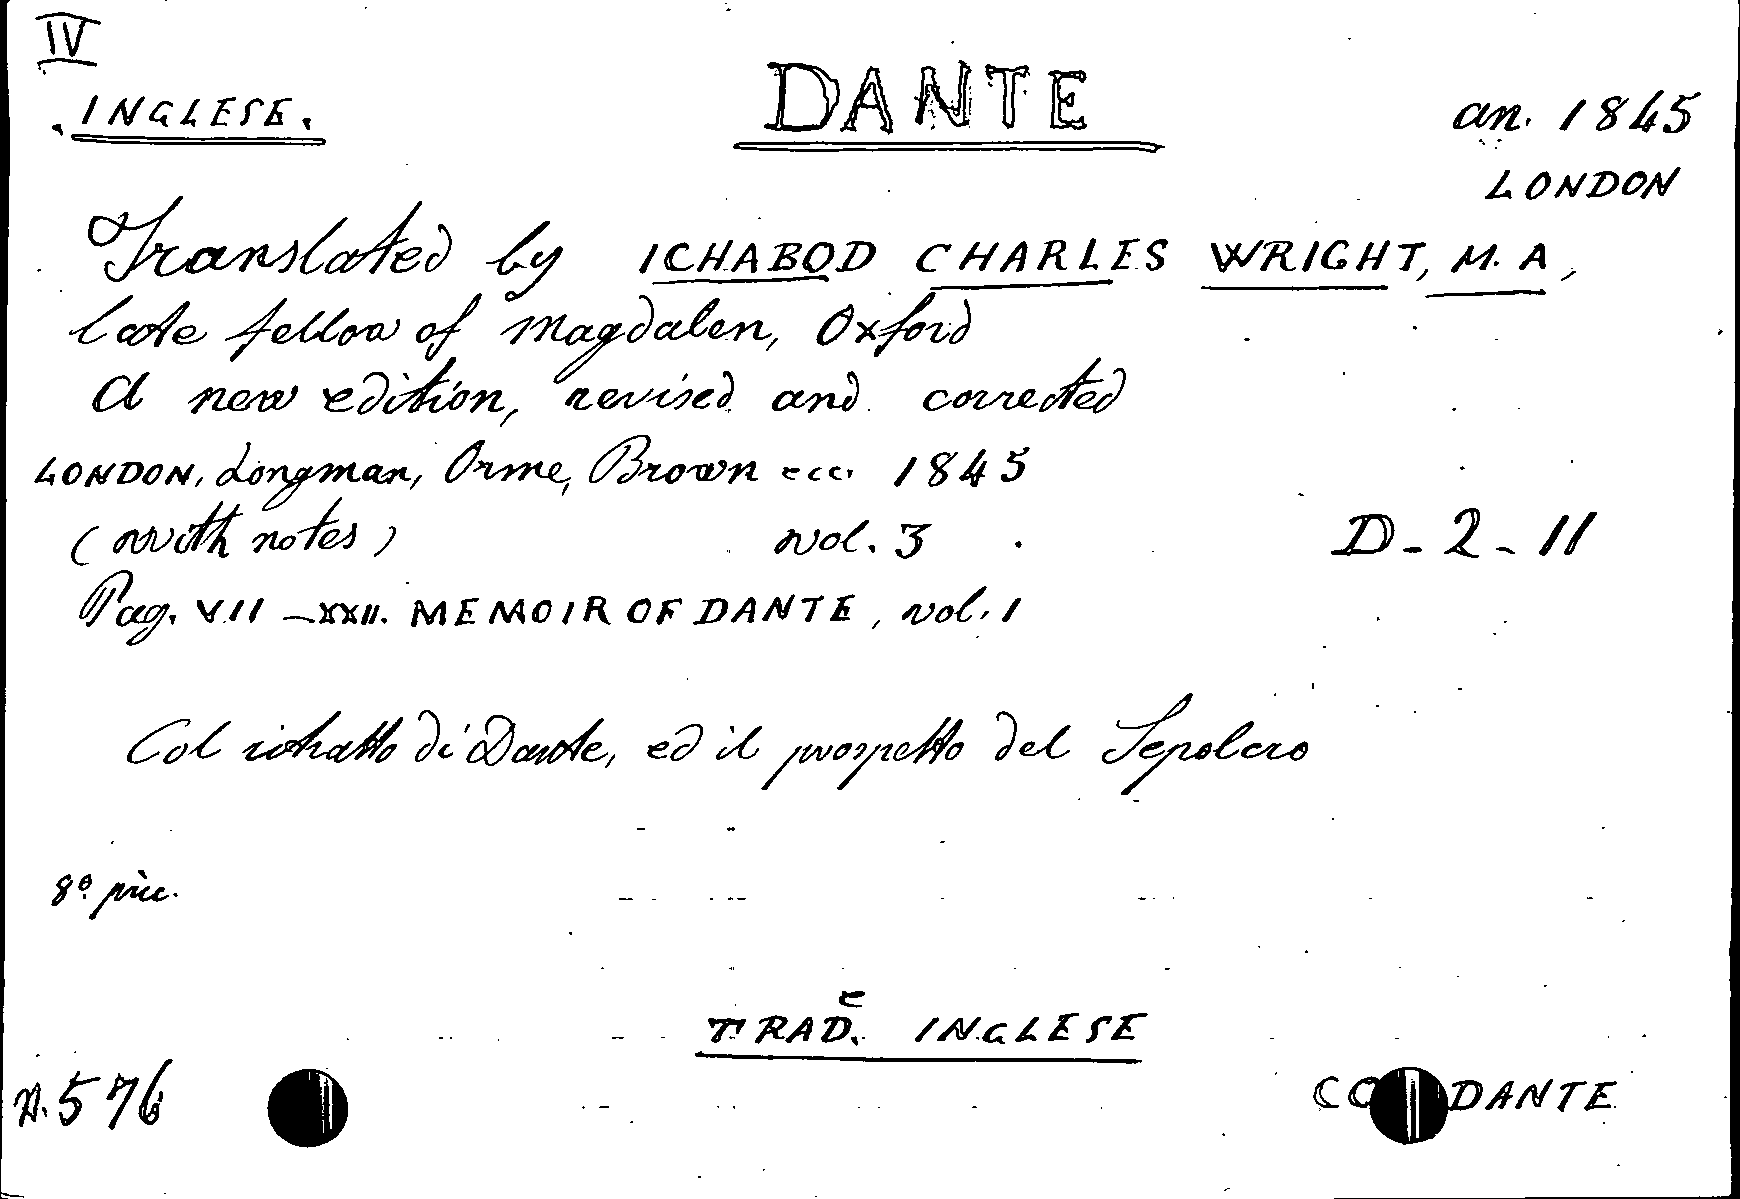 IV
. INGLESE.
DANTE
an. 1845
LONDON
Translated by ICHABOD CHARLES WRIGHT, M. A,
late fellow of Magdalen, Oxford
A new edition, revised and corrected
LONDON, Longman, Orme, Brown ecc. 1845
(with notes) vol. 3
D - 2 - 11
Pag. VII - XXII. MEMOIR OF DANTE, vol. 1
Col ritratto di Dante, ed il prospetto del Sepolcro
8º picc.
TRAD.e INGLESE
N. 576
DANTE